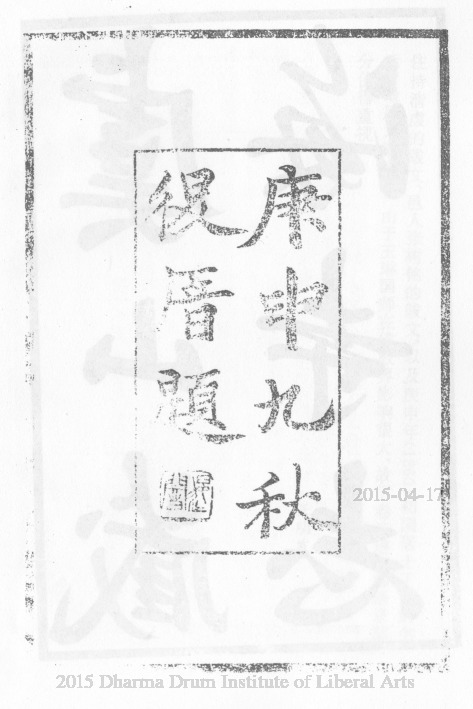 庚申九秋
假厝題
2015-04-17
2015 Dharma Drum Institute of Liberal Arts